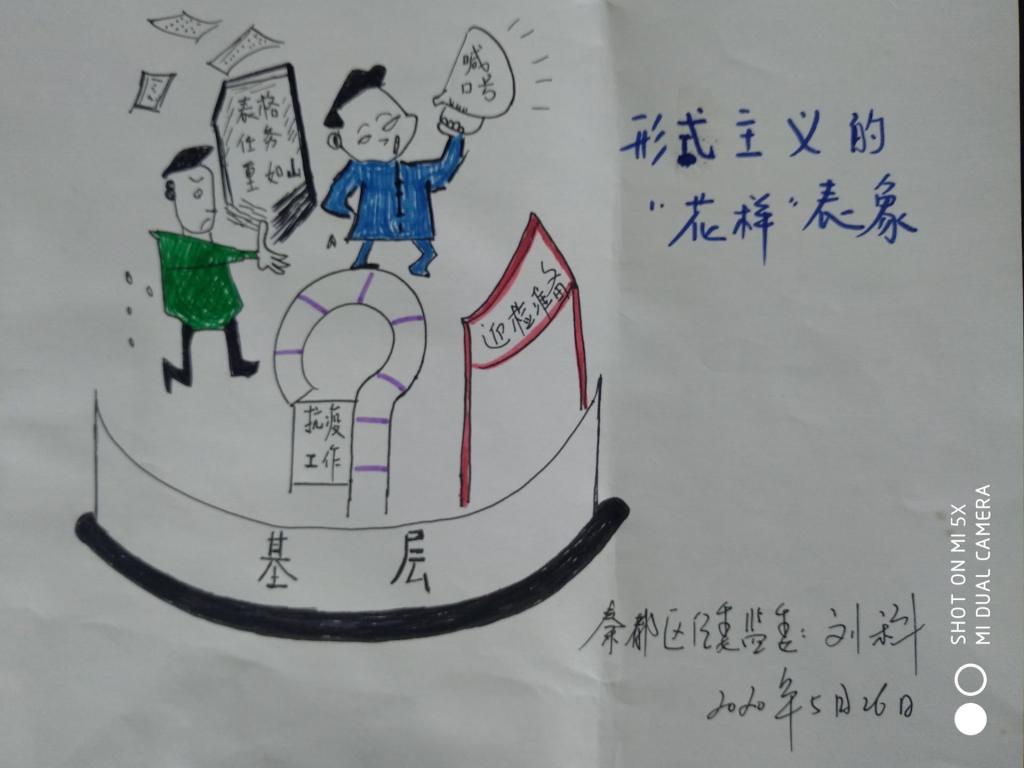 表格
任务
重如山
喊
口号
形式主义的
"花样"表象
迎检准备
抗疫
工作
基层
秦都区纪委监委：刘科
2020年5月26日
SHOT ON MI 5X
MI DUAL CAMERA